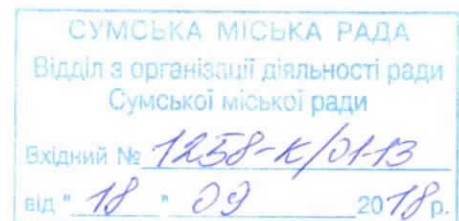 СУМСЬКА МІСЬКА РАДА
Відділ з організації діяльності ради
Сумської міської ради
Вхідний № 1258-К/01-13
від " 18 " 09 2018р.